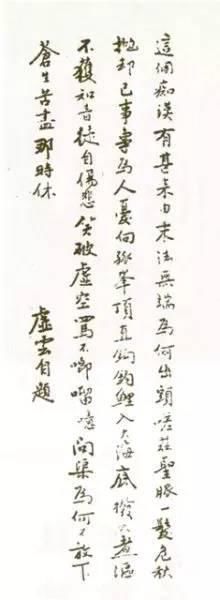 這個痴漢有甚來由末法無端為何出頭嗟茲聖脈一髮危秋
拋卻己事專為人憂向孤峯頂直鈎釣鯉入大海底撥火煮漚
不獲知音徒自傷悲笑破虛空罵不唧嚠噫問渠為何不放下
蒼生苦盡那時休 虛雲自題